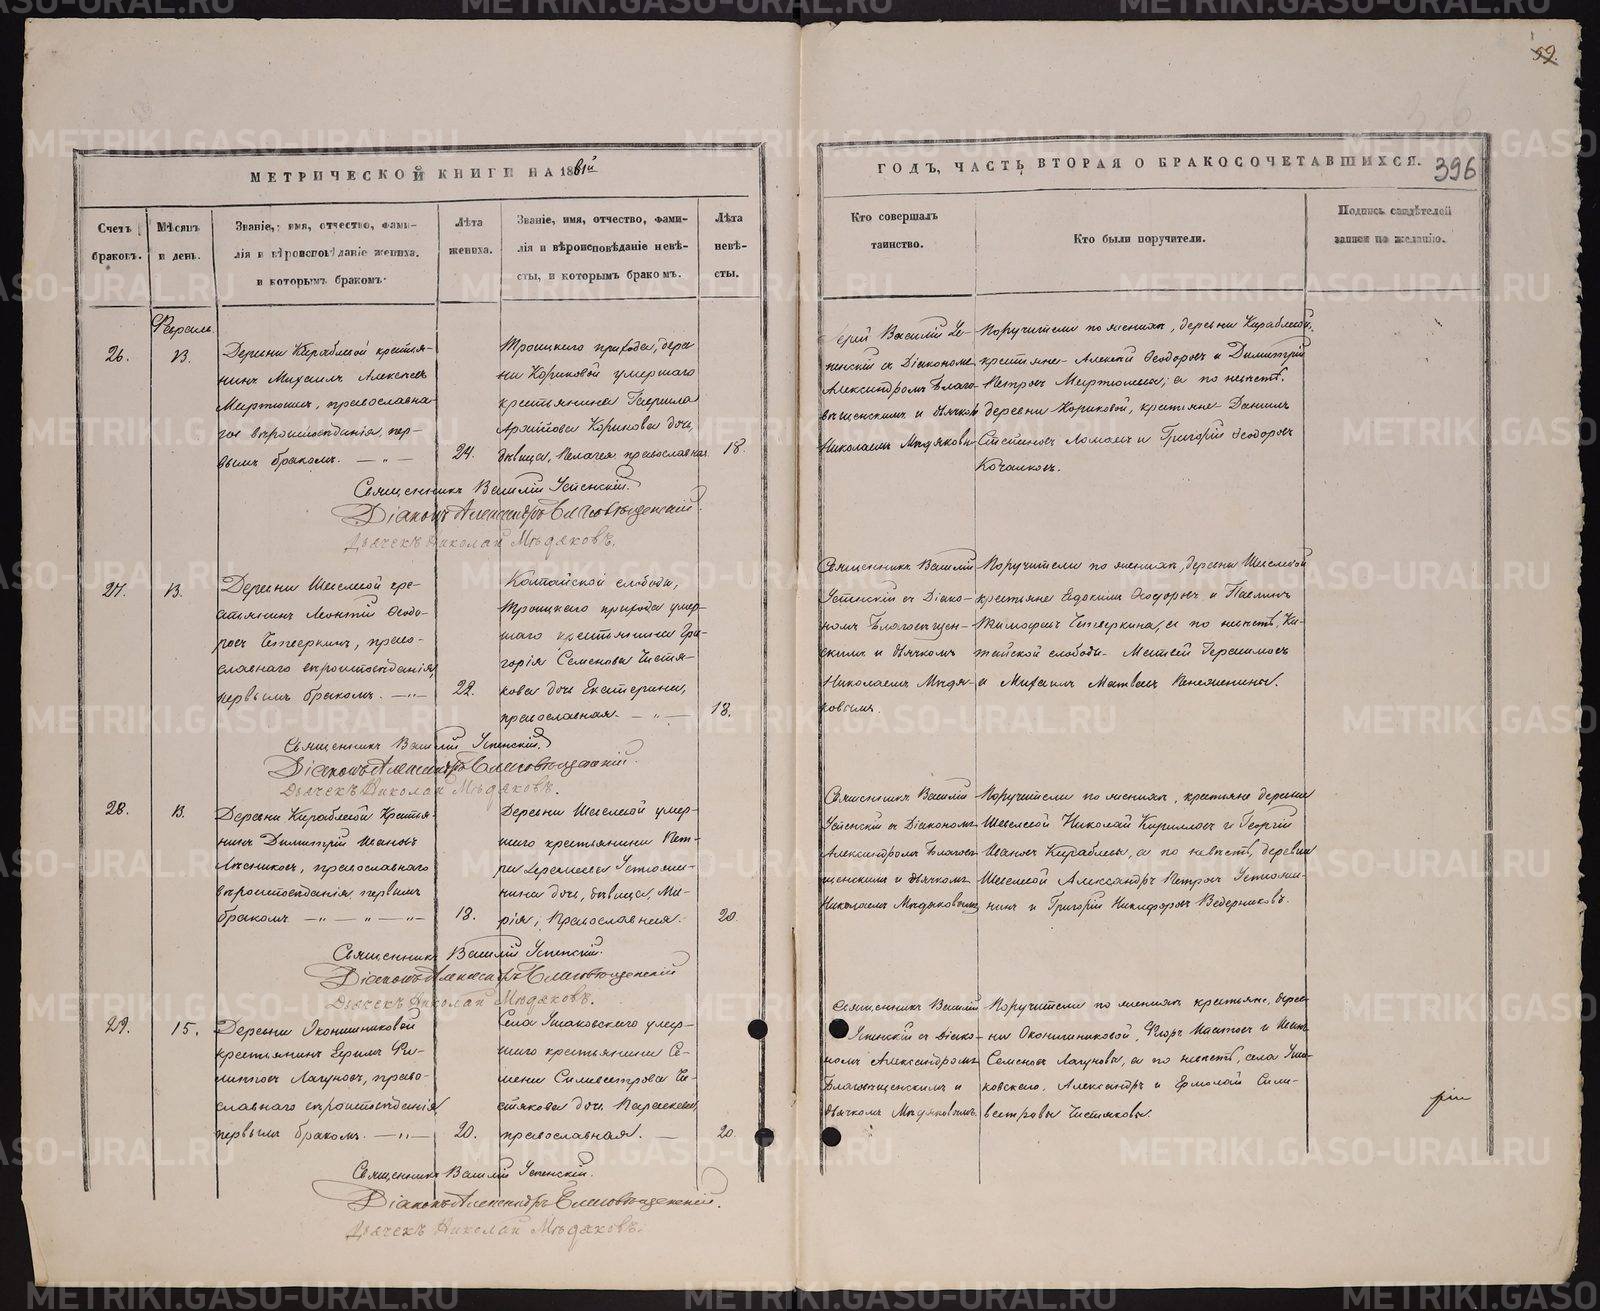 59.
МЕТРИЧЕСКОЙ КНИГИ НА 1861й
ГОДЪ, ЧАСТЬ ВТОРАЯ О БРАКОСОЧЕТАВШИХСЯ.
396
Счетъ браковъ.
Мѣсяцъ и день.
Званіе, имя, отчество, фами-
лія и вѣроисповѣданіе жениха,
и которымъ бракомъ.
Лѣта жениха.
Званіе, имя, отчество, фами-
лія и вѣроисповѣданіе невѣ-
сты, и которымъ бракомъ.
Лѣта невѣ-
сты.
Кто совершалъ
таинство.
Кто были поручители.
Подпись свидѣтелей
записи по желанію.
Февраль
26.
13.
Деревни Кираблевой крестья-
нинъ Михаилъ Алексѣевъ
православна-
го вѣроисповѣданія, пер-
вымъ бракомъ.
24.
Троицкаго прихода, дерев-
ни Кориковой умершаго
крестьянина Гавріила
Корикова дочь,
дѣвица, Пелагея православная.
18.
Іерей Василій Ус-
пенскій съ Діакономъ
Александромъ Благо-
вѣщенскимъ и дьячкомъ
Николаемъ Мѣдяковы-
Поручители по женихѣ, деревни Кираблевой,
крестьяне Алексѣй Ѳеодоровъ и Димитрій
Петровъ а по невѣстѣ,
деревни Кориковой, крестьяне Даніилъ
и Григорій Ѳеодоровъ
Священникъ Василій Успенскій.
Діаконъ Александръ Благовѣщенскій.
Дьячекъ Николай Мѣдяковъ.
27.
13.
Деревни Шевелевой кре-
стьянинъ Леонтій Ѳеодо-
ровъ Четверкинъ, право-
славнаго вѣроисповѣданія,
первымъ бракомъ.
22.
слободы,
Троицкаго прихода умер-
шаго крестьянина Гри-
горія Семенова Чистя-
кова дочь Екатерина,
православная.
18.
Священникъ Василій
Успенскій съ Діако-
номъ Благовѣщен-
скимъ и дьячкомъ
Николаемъ Мѣдя-
ковымъ.
Поручители по женихѣ, деревни Шевелевой
крестьяне Евдокимъ Ѳеодоровъ и Павлинъ
Тимофеевъ Четверкины, а по невѣстѣ,
слободы Матвей Герасимовъ
и Михаилъ Матвеевъ
Священникъ Василій Успенскій.
Діаконъ Александръ Благовѣщенскій.
Дьячекъ Николай Мѣдяковъ.
28.
13.
Деревни Кираблевой Крестья-
нинъ Димитрій Ивановъ
православнаго
вѣроисповѣданія первымъ
бракомъ
18.
Деревни Шевелевой умер-
шаго крестьянина Пет-
ра Устюжа-
нина дочь, дѣвица, Ма-
рія, Православная.
20.
Священникъ Василій
Успенскій съ Діакономъ
Александромъ Благовѣ-
щенскимъ и дьячкомъ
Николаемъ Мѣдяковымъ
Поручители по женихѣ, крестьяне деревни
Шевелевой Николай Кирилловъ и Георгій
Ивановъ Кираблевы, а по невѣстѣ, деревни
Шевелевой Александръ Петровъ Устюжа-
нинъ и Григорій Никифоровъ Ведерниковъ.
Священникъ Василій Успенскій.
Діаконъ Александръ Благовѣщенскій
Дьячекъ Николай Мѣдяковъ.
29.
15.
Деревни Оконишниковой
крестьянинъ Ефимъ Фи-
липповъ Лагуновъ, право-
славнаго вѣроисповѣданія
первымъ бракомъ.
20.
Села Ушаковскаго умер-
шаго крестьянина Се-
мена Силивестрова Чи-
стякова дочь Параскева,
православная.
20.
Священникъ Василій
Успенскій съ Діако-
номъ Александромъ
Благовѣщенскимъ и
дьячкомъ Мѣдяковымъ.
Поручители по женихѣ крестьяне, дерев-
ни Оконишниковой, Флоръ и Иванъ
Семеновъ Лагуновы, а по невѣстѣ, села Уша-
ковскаго, Александръ и Ермолай Сили-
вестровы Чистяковы.
Священникъ Василій Успенскій.
Діаконъ Александръ Благовѣщенскій.
Дьячекъ Николай Мѣдяковъ.
METRIKI.GASO-URAL.RU